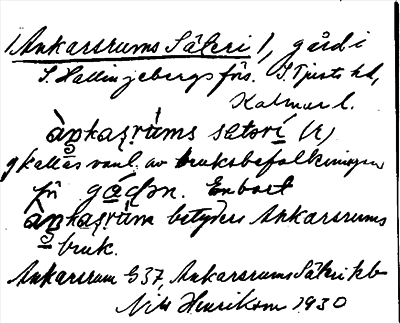 (Ankarsrums Säteri), gård i
S. Hallingebergs förs. S. Tjusts hd,
Kalmar l.
àŋkaʂrúms sǝtǝrí (A)
kallas vanl. av bruksbefolkningen
på gɑ́ɖǝn. Enbart
àŋkaʂrúm betyder Ankarsrums
bruk.
Ankarsrum G37, Ankarsrums Säteri kb
Nils Henrikson 1930